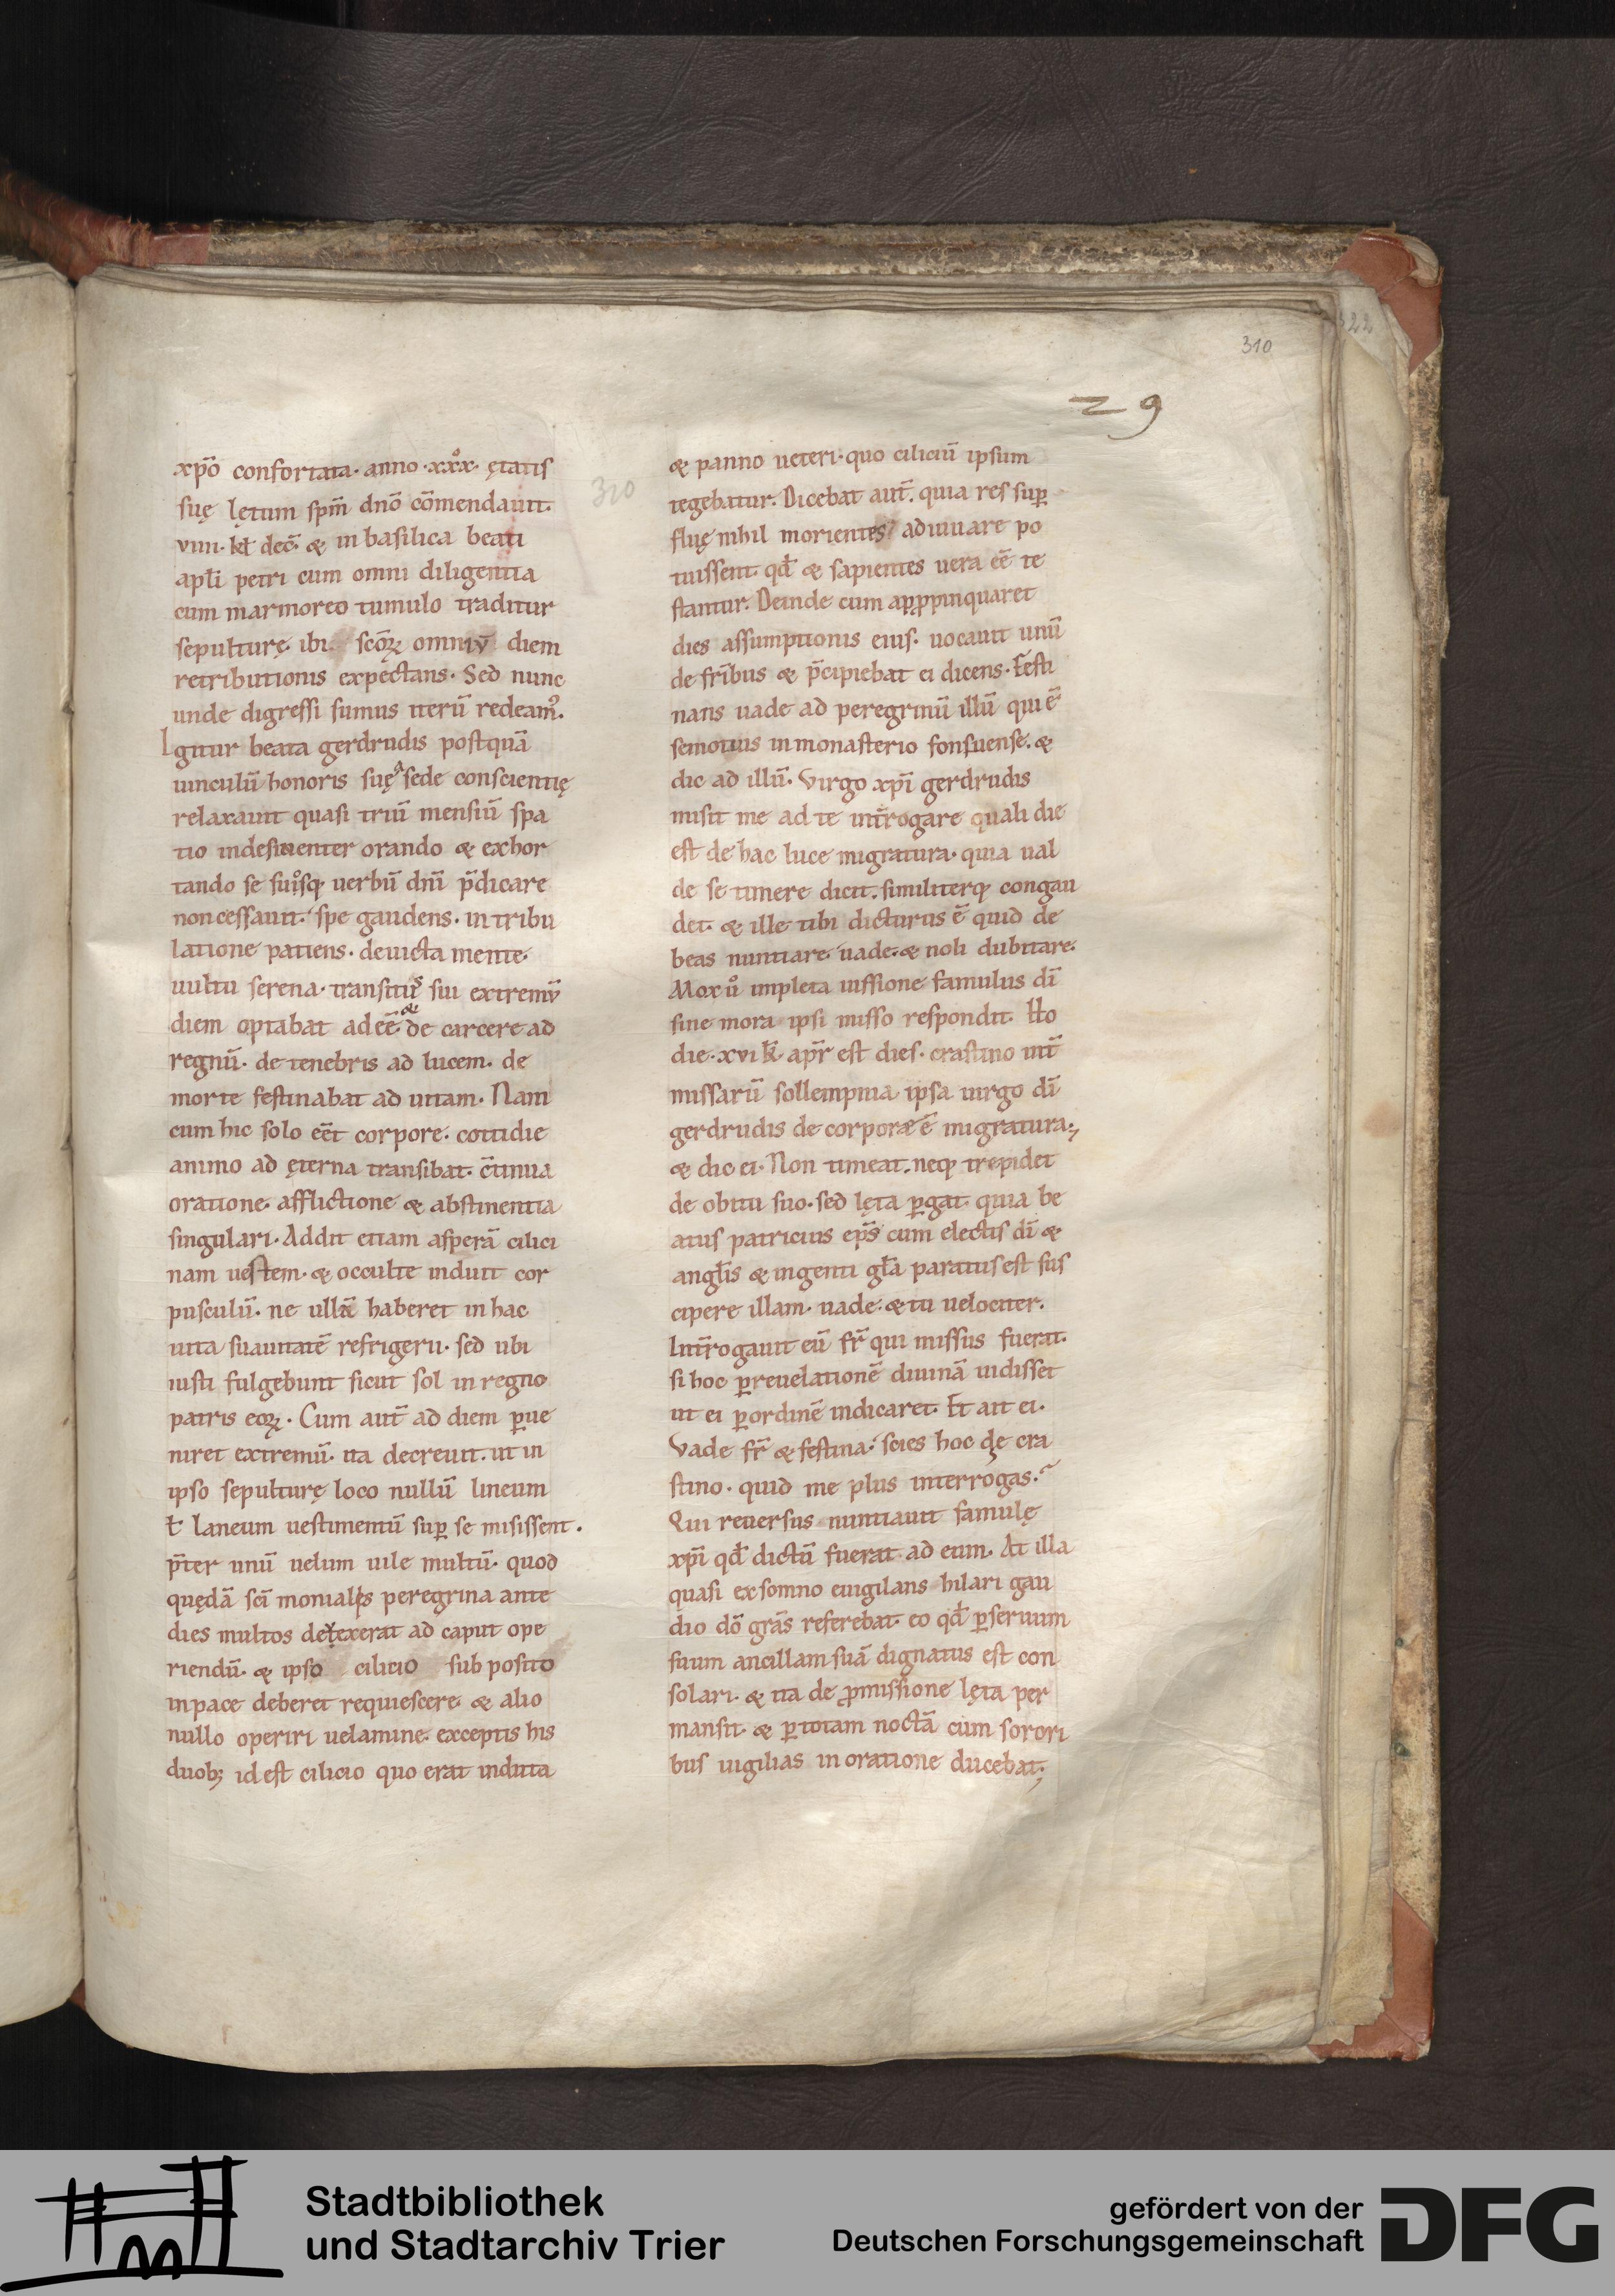 322
310
29
310
xp̄o confortata· anno ·xxx̊· ętatis
suę lętum sp̄m dn̄o cōmendauit·
viiii· kł dec̄· & in basilica beati
apłi petri cum omni diligentia
cum marmoreo tumulo traditur
sepulturę· ibi scōꝝ omniū diem
retributionis expectans· Sed nunc
unde digressi sumus iterū redeamꝰ·
Igitur beata gerdrudis postquā
uinculū honoris suę a sede conscientię
relaxauit quasi triū mensiū spa
tio indesinenter orando & exhor
tando se suosq; uerbū dn̄i p̄dicare
non cessauit· spe gaudens· in tribu
latione patiens· deuicta mente·
uultu serena· transitus sui extremū
diem optabat adeē & de carcere ad
regnū· de tenebris ad lucem· de
morte festinabat ad uitam· Nam
cum hic solo eēt corpore· cottidie
animo ad ęterna transibat· c̄tinua
oratione· afflictione & abstinentia
singulari· Addit etiam asperā cilici
nam uestem· & occulte induit cor
pusculū· ne ullā haberet in hac
uita suauitatē refrigerii· sed ubi
iusti fulgebunt sicut sol in regno
patris eoꝝ· Cum aut̄ ad diem ꝑue
niret extremū· ita decreuit· ut in
ipso sepulturę loco nullū lineum
ł laneum uestimentū suꝑ se misissent·
p̄ter unū uelum uile multū· quod
quędā sc̄i moniales peregrina ante
dies multos detexerat ad caput ope
riendū· & ipso cilicio sub posito
in pace deberet requiescere· & alio
nullo operiri uelamine· exceptis his
duobꝫ id est cilicio quo erat induta
& panno ueteri· quo ciliciū ipsum
tegebatur· Dicebat aut̄· quia res suꝑ
fluę nihil morientes adiuuare po
tuissent· qđ & sapientes uera eē te
stantur· Deinde cum apꝓpinquaret
dies assumptionis eius· uocauit unū
de fr̄ibus & p̄cipiebat ei dicens· Festi
nans uade ad peregrinū illū qui ē
semotus in monasterio fonsuense· &
dic ad illū· Virgo xp̄i gerdrudis
misit me ad te int̄rogare quali die
est de hac luce migratura· quia ual
de se timere dicit· similiterq; congau
det· & ille tibi dicturus ē quid de
beas nuntiare· uade· & noli dubitare·
Mox u̇ impleta iussione famulus dī
sine mora ipsi misso respondit· Ho
die· xvi k̄· apr̄ est dies· crastino int̄
missarū sollempnia ipsa uirgo dī
gerdrudis de corpore ē migratura·
& dic ei· Non timeat· neq; trepidet
de obitu suo· sed lęta ꝑgat· quia be
atus patricius ep̄s cum electis dī &
angłis & ingenti gła paratus est sus
cipere illam· uade· & tu uelociter·
Int̄rogauit eū fr̄ qui missus fuerat·
si hoc ꝑ reuelationē diuinā uidisset
ut ei ꝑ ordinē indicaret· Et ait ei·
Vade fr̄ & festina· scies hoc de cra
stino· quid me plus interrogas·
Qui reuersus nuntiauit famulę
xp̄i qđ dictū fuerat ad eum· At illa
quasi ex somno euigilans hilari gau
dio dō gr̄as referebat· eo qđ ꝑ seruum
suum ancillam suā dignatus est con
solari· & ita de ꝓmissione lęta per
mansit· & ꝑ totam noctā cum sorori
bus uigilias in oratione ducebat;
Stadtbibliothek
und Stadtarchiv Trier
gefördert von der
Deutschen Forschungsgemeinschaft
DFG